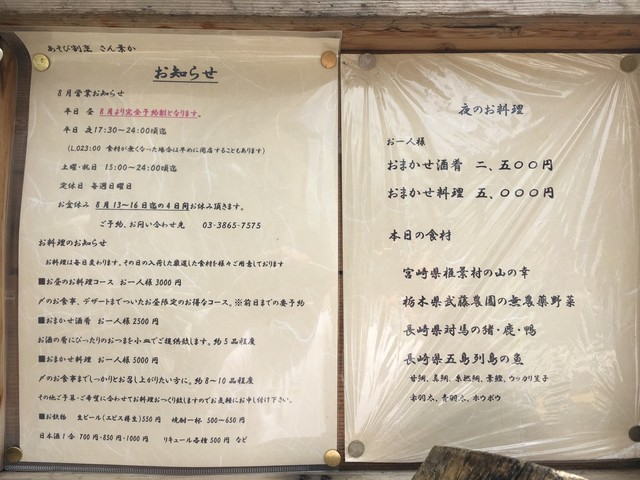 あそび割烹 さん葉か
お知らせ
8月営業お知らせ
平日 昼 8月より完全予約制となります。
平日 夜17:30~24:00頃迄
(L.O23:00 食材が無くなった場合は早めに閉店することもあります)
土曜・祝日 15:00~24:00頃迄
定休日 毎週日曜日
お盆休み 8月13~16日迄の4日間お休み頂きます。
ご予約、お問い合わせ先 03-3865-7575
お料理のお知らせ
お料理は毎日変わります。その日の入荷した厳選した食材を様々ご用意しております
■お昼のお料理コース お一人様3000円
〆のお食事、デザートまでついたお昼限定のお得なコース。※前日までの要予約
■おまかせ酒肴 お一人様2500円
お酒の肴にぴったりのおつまを小皿でご提供致します。約5品程度
■おまかせ料理 お一人様5000円
〆のお食事までしっかりとお召し上がりたい方に。約8~10品程度
その他ご予算・ご希望に合わせてお料理おつくり致しますのでお気軽にお申し付け下さい。
■お飲物 生ビール(エビス樽生)550円 焼酎一杯 500~650円
日本酒1合 700円・850円・1000円 リキュール各種500円 など
夜のお料理
お一人様
おまかせ酒肴 二、五〇〇円
おまかせ料理 五、〇〇〇円
本日の食材
宮崎県椎葉村の山の幸
栃木県武藤農園の無農薬野菜
長崎県対馬の猪・鹿・鴨
長崎県五島列島の魚
甘鯛、真鯛、糸撚鯛、葉鰹、ウッカリ笠子
赤羽太、青羽太、ホウボウ